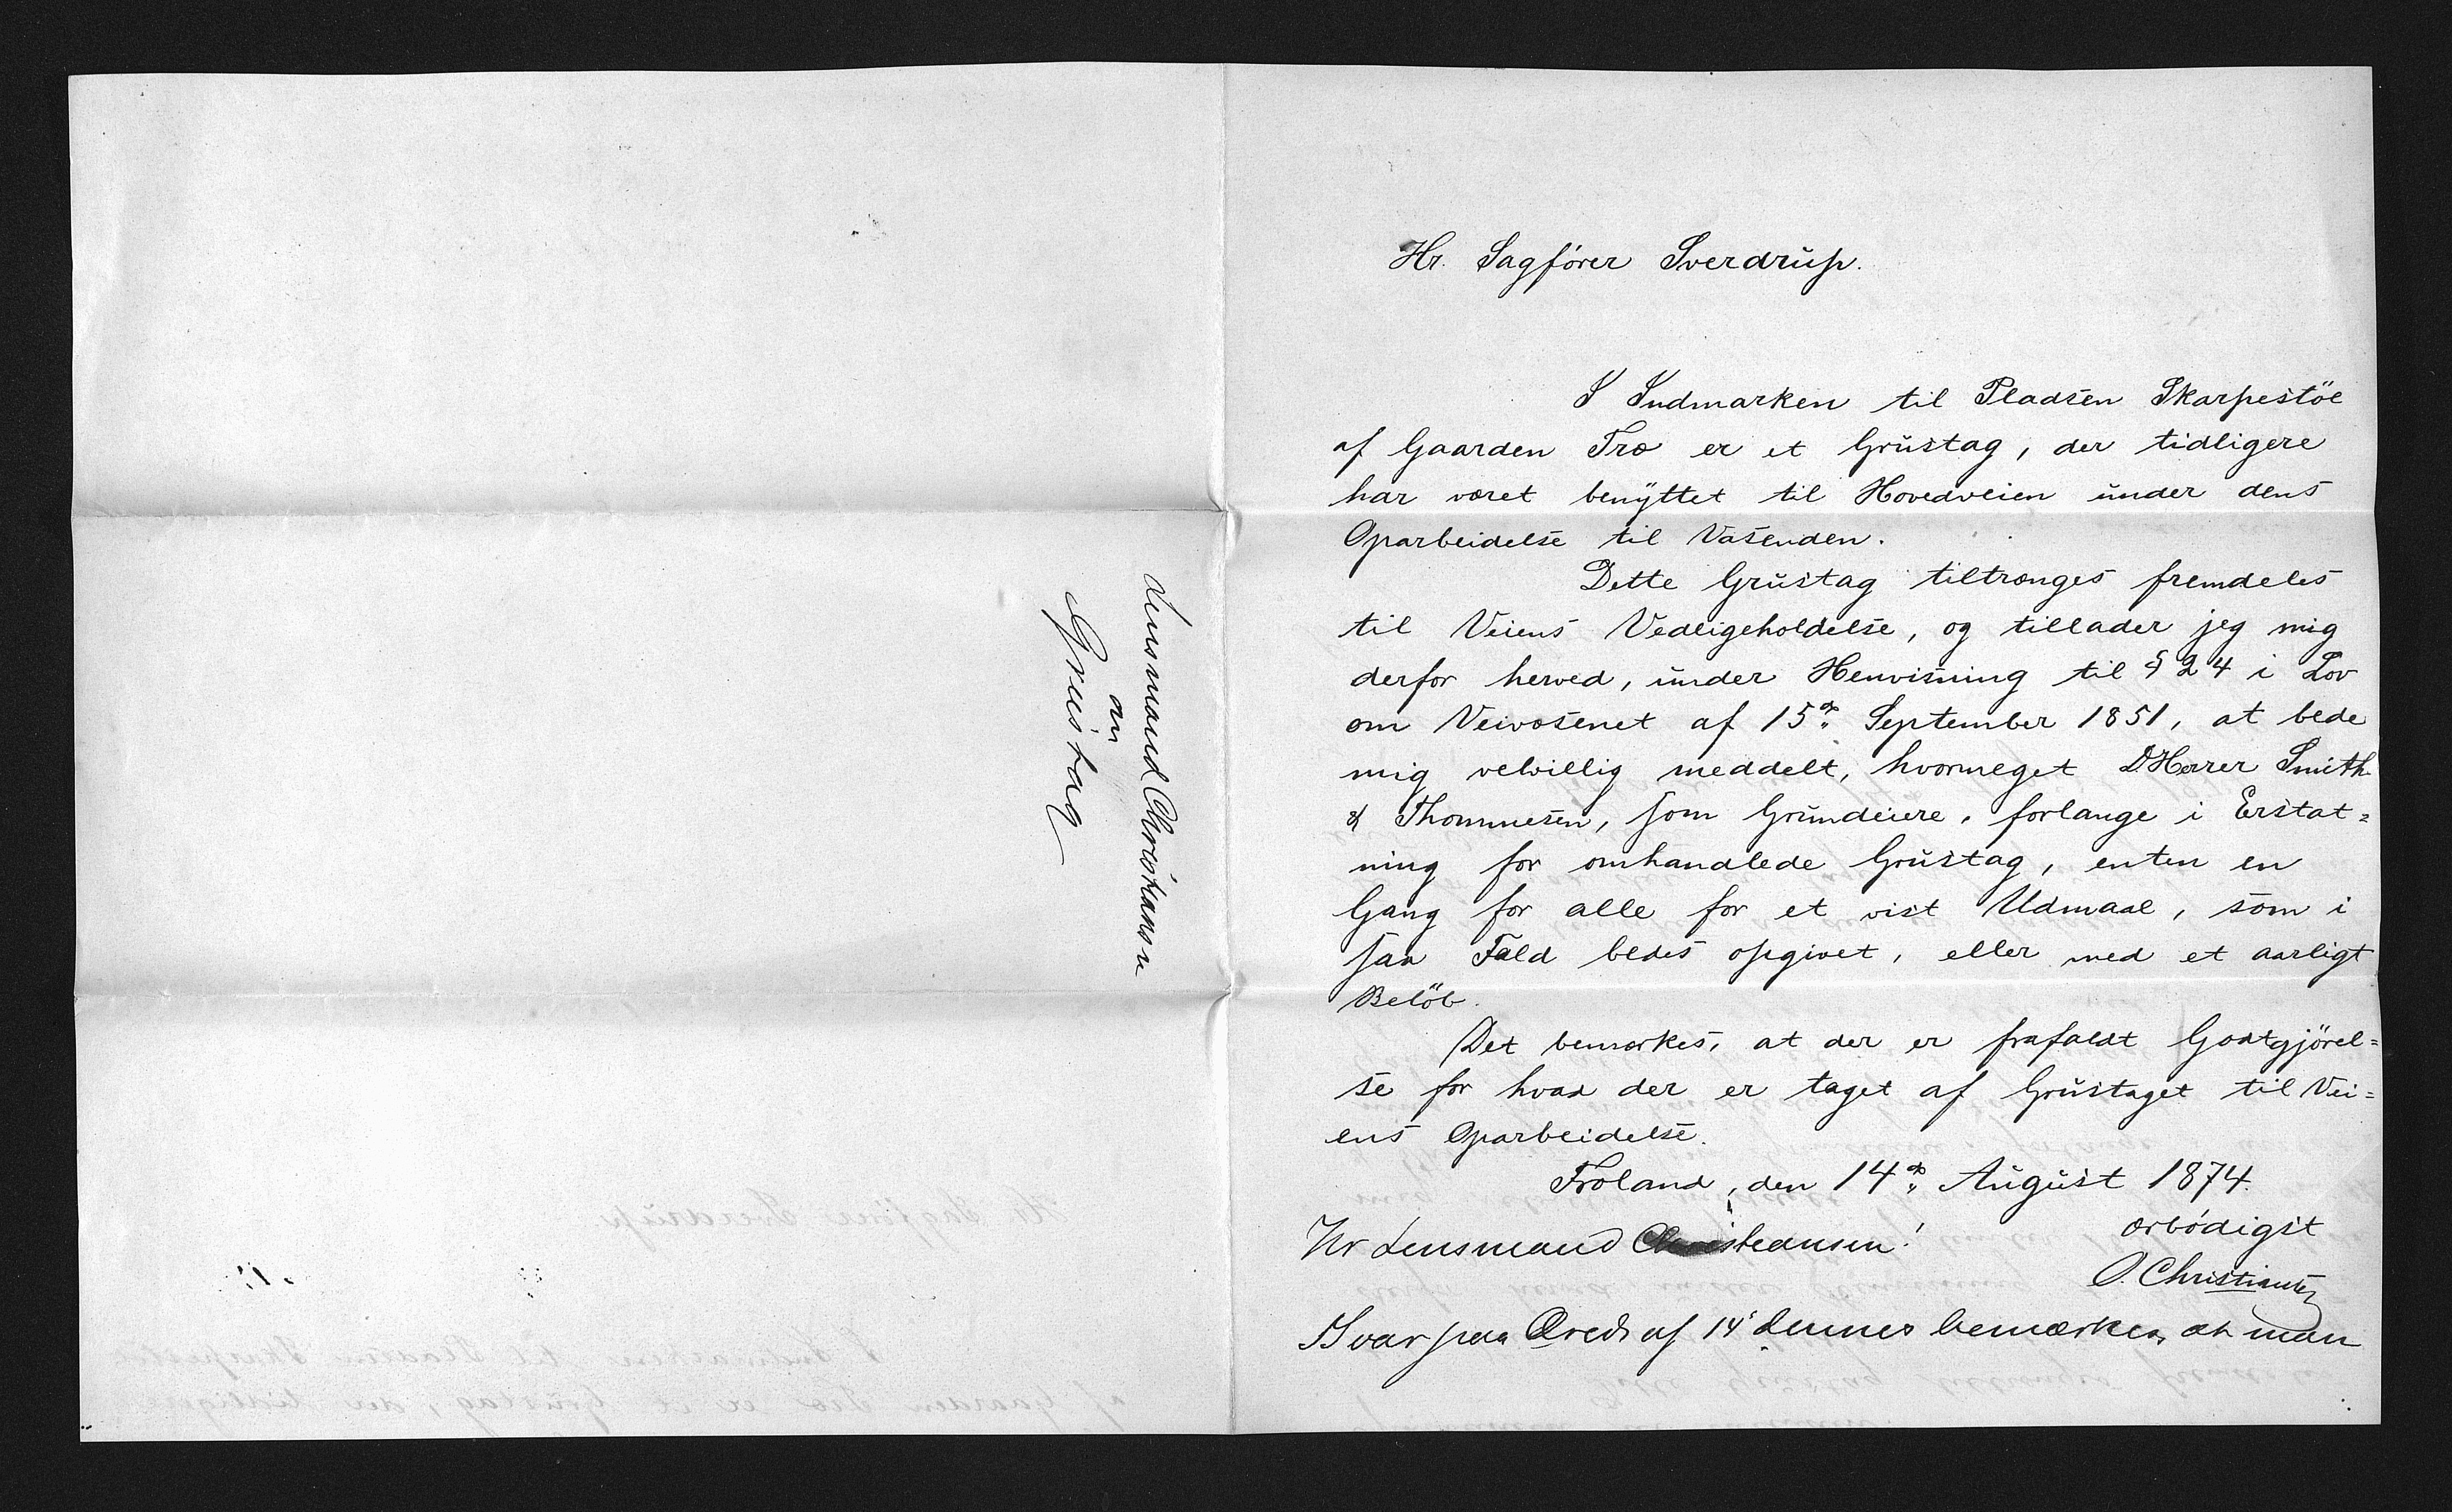 Lensmand Christiansen
om
Gruustag
Hr. Sagförer Sverdrup.
I Indmarken til Pladsen Skarpestöl
af Gaarden Træ er et Grustag, der tidligere
har været benyttet til Hovedveien under dens
Oparbeidelse til Vasenden.
Dette Grustag tiltrænges fremdeles
til Veiens Vedligeholdelse, og tillader jeg mig
derfor herved, under Henvisning til § 24 i Lov
om Veivæsenet af 15de September 1851, at bede
mig velvillig meddelt, hvormeget D'Herrer Smith
& Thommesen, som Grundeiere, forlange i Erstat=
ning for omhandlede Grustag, enten en
Gang for alle for et vist Udmaal, som i
saa Fald bedes opgivet, eller med et aarligt
Beløb.
Det bemærkes, at der er frafaldt Godtgjörel=
se for hvad der er taget af Grustaget til Vei=
ens Oparbeidelse.
Froland, den 14de August 1874.
ærbödigst
O. Christiansen
Hr Lensmand Christiansen!
I Svar paa Deres af 14' dennes bemærkes, at man